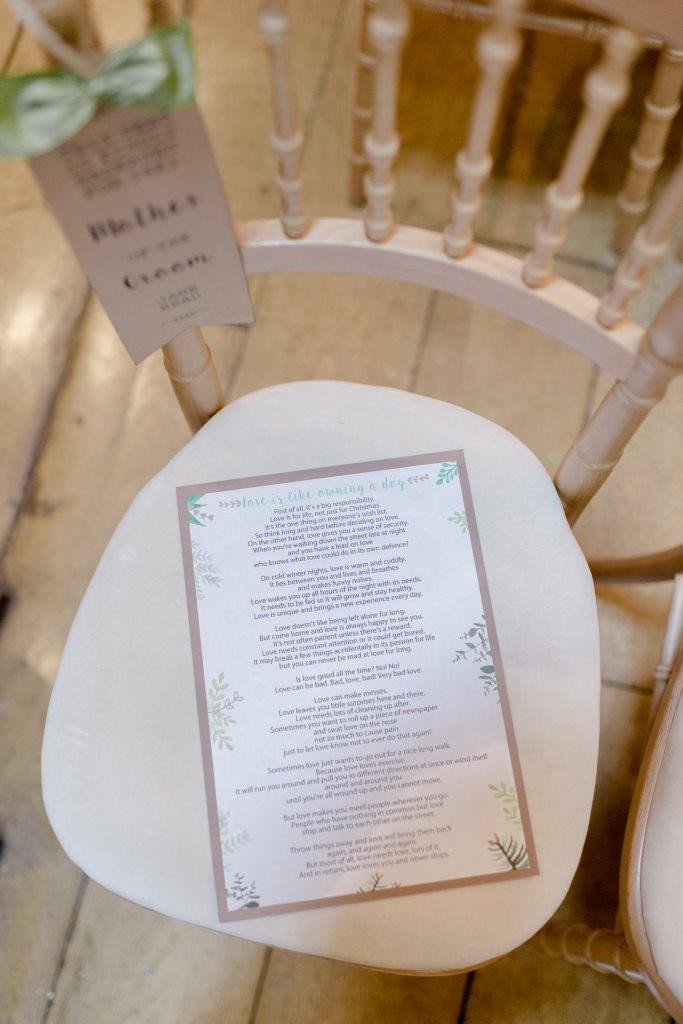 Mother
OF THE
Groom
JANE
READ
Love is like owning a dog
First of all, it's a big responsibility.
Love is for life, not just for Christmas.
It's the one thing on everyone's wish list.
So think long and hard before deciding on love.
On the other hand, love gives you a sense of security.
When you're walking down the street late at night
and you have a lead on love
who knows what love could do in its own defence?
On cold winter nights, love is warm and cuddly.
It lies between you and lives and breathes
and makes funny noises.
Love wakes you up all hours of the night with its needs.
It needs to be fed so it will grow and stay healthy.
Love is unique and brings a new experience every day.
Love doesn't like being left alone for long.
But come home and love is always happy to see you.
It's not often patient unless there's a reward.
Love needs constant attention or it could get bored.
It may break a few things accidentally in its passion for life
but you can never be mad at love for long.
Is love good all the time? No! No!
Love can be bad. Bad, love, bad! Very bad love.
Love can make messes.
Love leaves you little surprises here and there.
Love needs lots of cleaning up after.
Sometimes you want to roll up a piece of newspaper
and swat love on the nose
not so much to cause pain
just to let love know not to ever do that again!
Sometimes love just wants to go out for a nice long walk.
Because love loves exercise.
It will run you around and pull you in different directions at once or wind itself
around and around you
until you're all wound up and you cannot move.
But love makes you meet people wherever you go.
People who have nothing in common but love
stop and talk to each other on the street.
Throw things away and love will bring them back
again, and again and again.
But most of all, love needs love, lots of it.
And in return, love loves you and never stops.